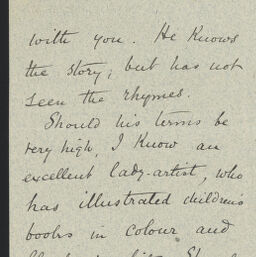 with you. He knows
the story; but has not
seen the rhymes.
Should his terms be
very high, I know an
excellent lady-artist, who
has illustrated children's
books in colour and